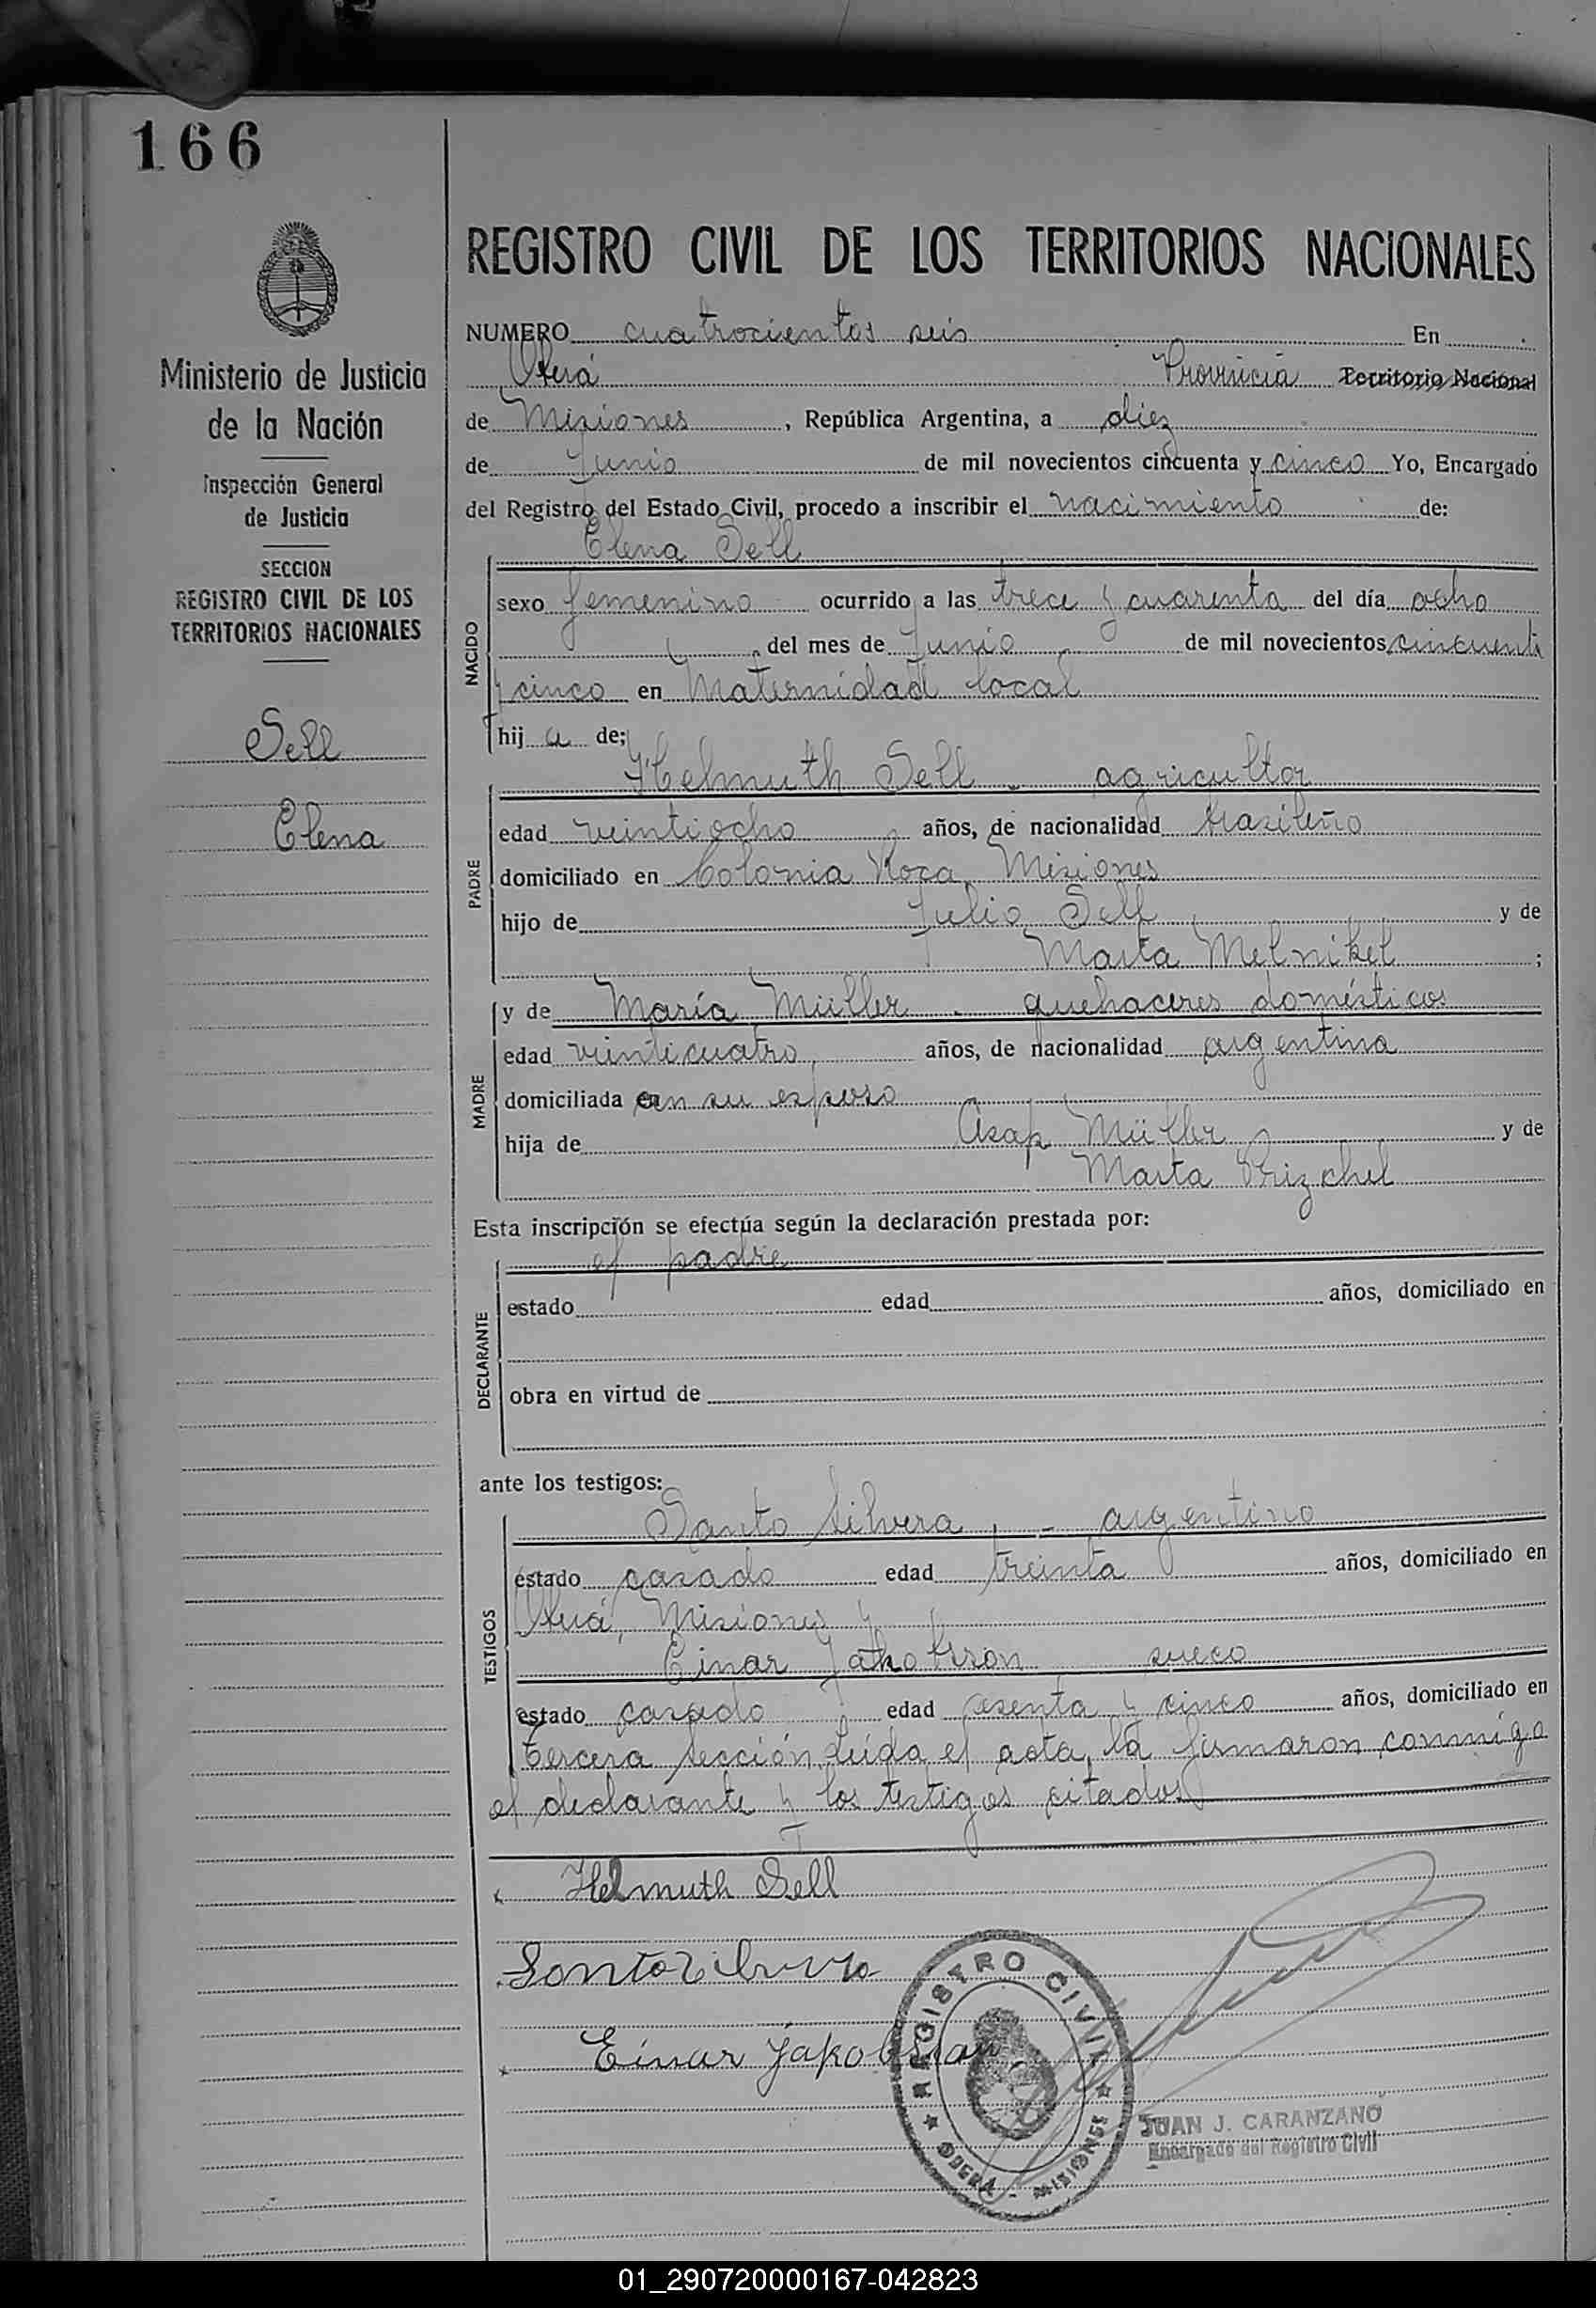 166
Ministerio de Justicia
de la Nación
Inspección General
de Justicia
SECCION
REGISTRO CIVIL DE LOS
TERRITORIOS NACIONALES
Sell
Elena
REGISTRO CIVIL DE LOS TERRITORIOS NACIONALES
NUMERO cuatrocientos seis En
Oberá Provincia Territorio Nacional
de Misiones, República Argentina, a diez
de Junio de mil novecientos cincuenta y cinco Yo, Encargado
del Registro del Estado Civil, procedo a inscribir el nacimiento de:
Elena Sell
NACIDO
sexo femenino ocurrido a las trece y cuarenta del día ocho
del mes de Junio de mil novecientos cincuenta
y cinco en Maternidad local
hij a de;
Helmuth Sell - agricultor
PADRE
edad veintiocho años, de nacionalidad brasileño
domiciliado en Colonia Roca, Misiones
hijo de Julio Sell y de
Marta Melnikel ;
MADRE
y de María Müller - quehaceres domésticos
edad veinticuatro, años, de nacionalidad argentina
domiciliada con su esposo
hija de Asap Müller y de
Marta
Esta inscripción se efectúa según la declaración prestada por:
el padre
DECLARANTE
estado edad años, domiciliado en
obra en virtud de
ante los testigos:
Santo Silvera, - argentino
TESTIGOS
estado casado edad treinta años, domiciliado en
Oberá, Misiones y
Einar Jakobsson sueco
estado casado edad sesenta y cinco años, domiciliado en
tercera sección. Leída el acta, la firmaron conmigo
el declarante y los testigos citados
Helmuth Sell
Santo
Einar Jakobsson
REGISTRO CIVIL
OBERA - MISIONES
JUAN J. CARANZANO
Encargado del Registro Civil
01_290720000167-042823